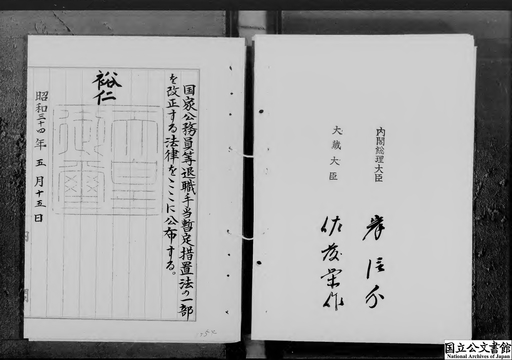 内閣総理大臣 岸信介
大蔵大臣 佐藤栄作
国家公務員等退職手当暫定措置法の一部
を改正する法律をここに公布する。
裕仁
昭和三十四年五月十五日
天皇
御璽
国立公文書館
National Archives of Japan